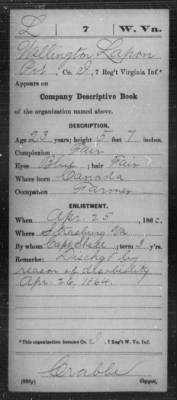 L | 7 | W. Va.
Wellington Lapon
Pvt., Co. I, 7 Reg't Virginia Inf.*
Appears on
Company Descriptive Book
of the organization named above.
DESCRIPTION.
Age 23 years; height 5 feet 7 inches.
Complexion Fair
Eyes Blue; hair Fair
Where born Canada
Occupation Farmer
ENLISTMENT.
When Apr. 25, 186
Where Strasburg Va
By whom Capt; term 3 y'rs.
Remarks: Dischgd by
reason of disability
Apr. 26, 1864.
*This organization became Co., 7 Reg't W. Va. Inf.
Crabbe
Copyist.